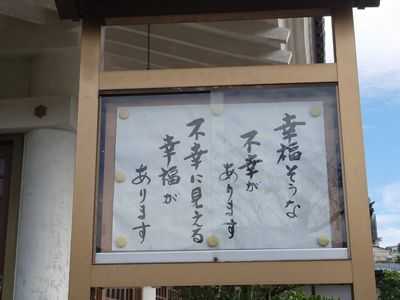 幸福そうな
不幸が
あります
不幸に見える
幸福が
あります